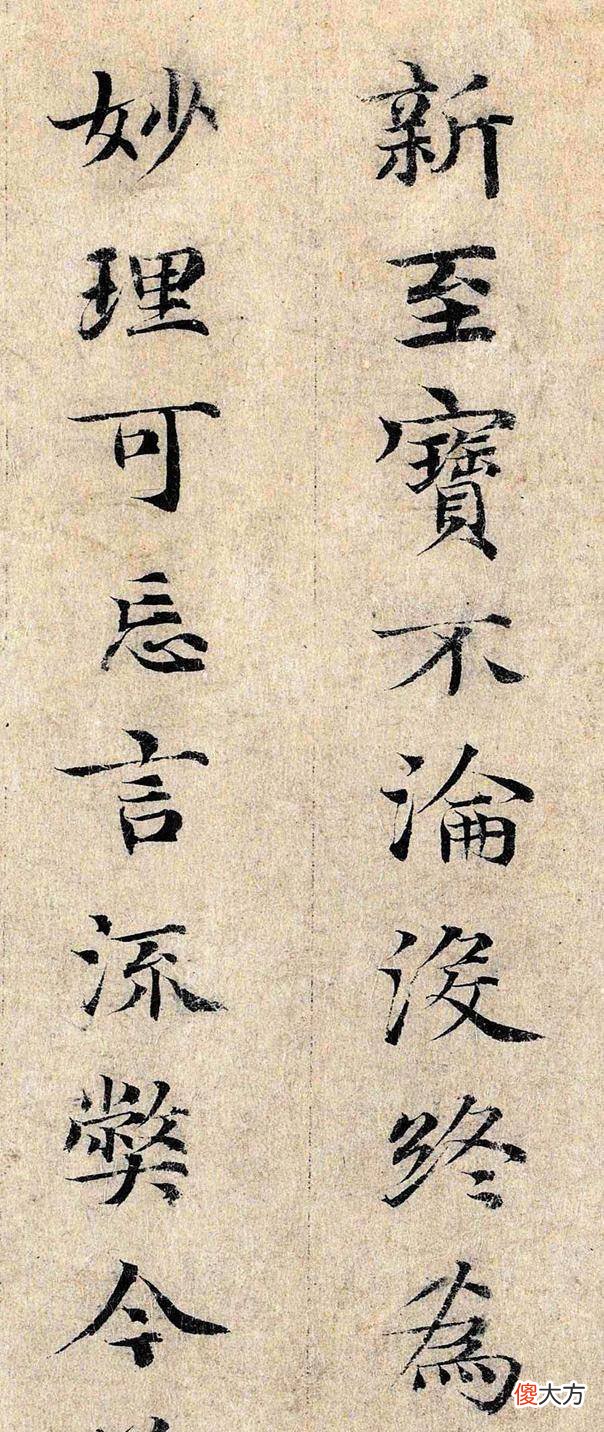 新至寶不淪沒終為
妙理可忘言流弊今
傻大方